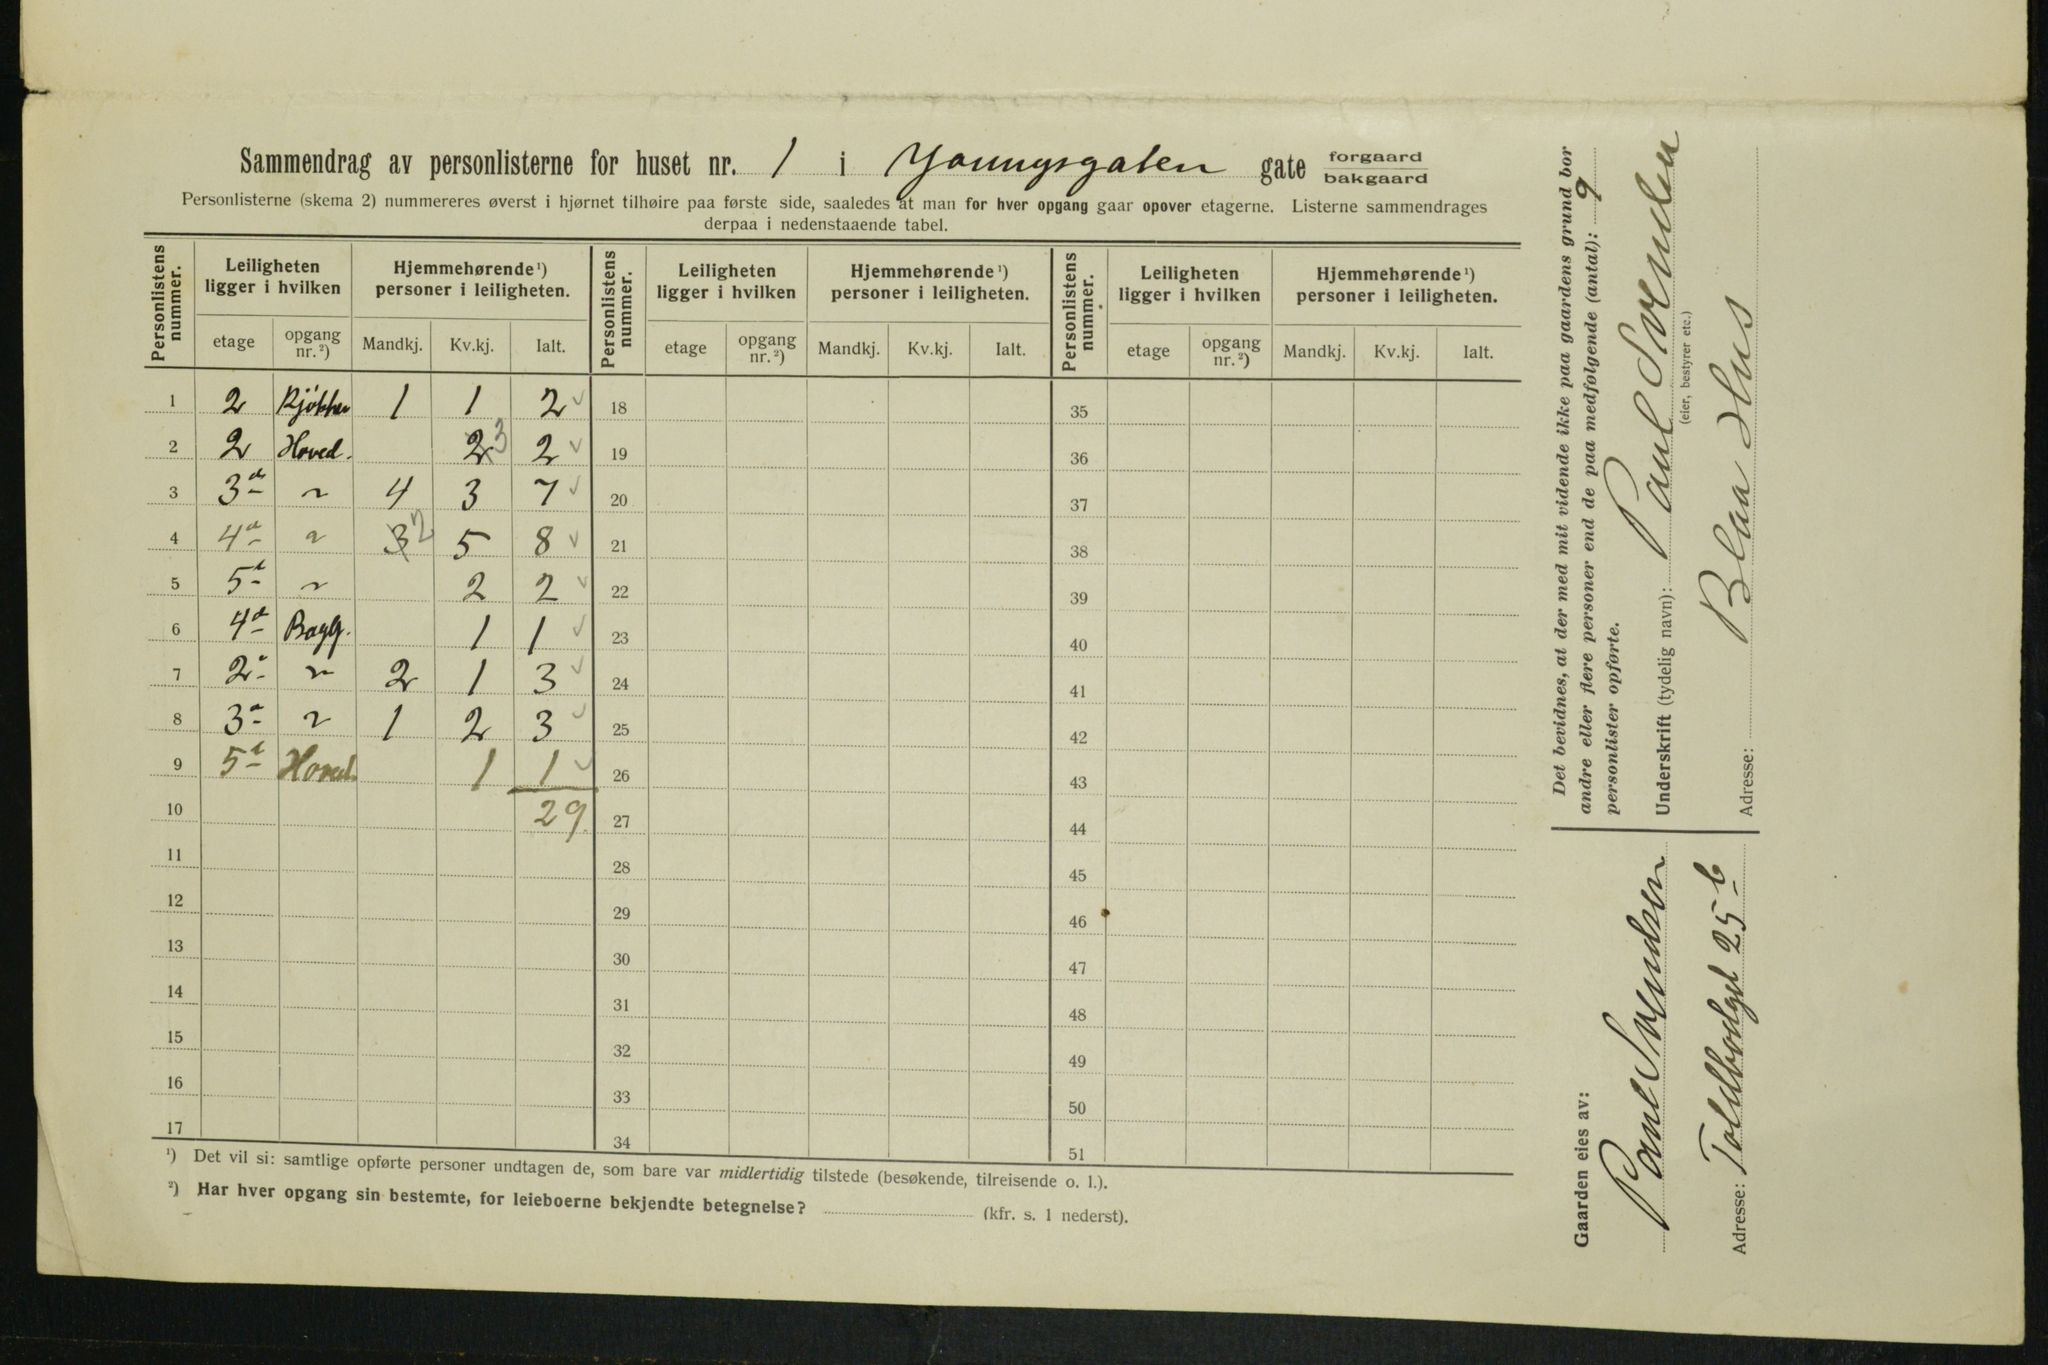 Sammendrag av personlisterne for huset nr. 1 i Youngsgaten gate forgaard bakgaard
Personlisterne (skema 2) nummereres øverst i hjørnet tilhøire paa første side, saaledes at man for hver opgang gaar opover etagerne. Listerne sammendrages
derpaa i nedenstaaende tabel.
Personlistens nummer. Leiligheten ligger i hvilken Hjemmehørende ¹) personer i leiligheten. Personlistens nummer. Leiligheten ligger i hvilken Hjemmehørende ¹) personer i leiligheten. Personlistens nummer. Leiligheten ligger i hvilken Hjemmehørende ¹) personer i leiligheten.
etage opgang nr. ²) Mandkj. Kv.kj. Ialt. etage opgang nr. ²) Mandkj. Kv.kj. Ialt. etage opgang nr. ²) Mandkj. Kv.kj. Ialt.
1 2 Kjøkken 1 1 2 18 35
2 2 Hoved. 2 3 2 19 36
3 3d " 4 3 7 20 37
4 4d " 3 2 5 8 21 38
5 5d " 2 2 22 39
6 4d Bagg. 1 1 23 40
7 2d " 2 1 3 24 41
8 3d " 1 2 3 25 42
9 5d Hoved. 1 1 26 43
10 29 27 44
11 28 45
12 29 46
13 30 47
14 31 48
15 32 49
16 33 50
17 34 51
¹) Det vil si: samtlige opførte personer undtagen de, som bare var midlertidig tilstede (besøkende, tilreisende o. l.).
²) Har hver opgang sin bestemte, for leieboerne bekjendte betegnelse? (kfr. s. 1 nederst).
Det bevidnes, at der med mit vidende ikke paa gaardens grund bor
andre eller flere personer end de paa medfølgende (antal): 9
personlister opførte.
Underskrift (tydelig navn): Paul Svendsen
(eier, bestyrer etc.)
Adresse: Blaa Hus
Gaarden eies av:
Paul Svendsen
Adresse: Toldbodgt 25 b